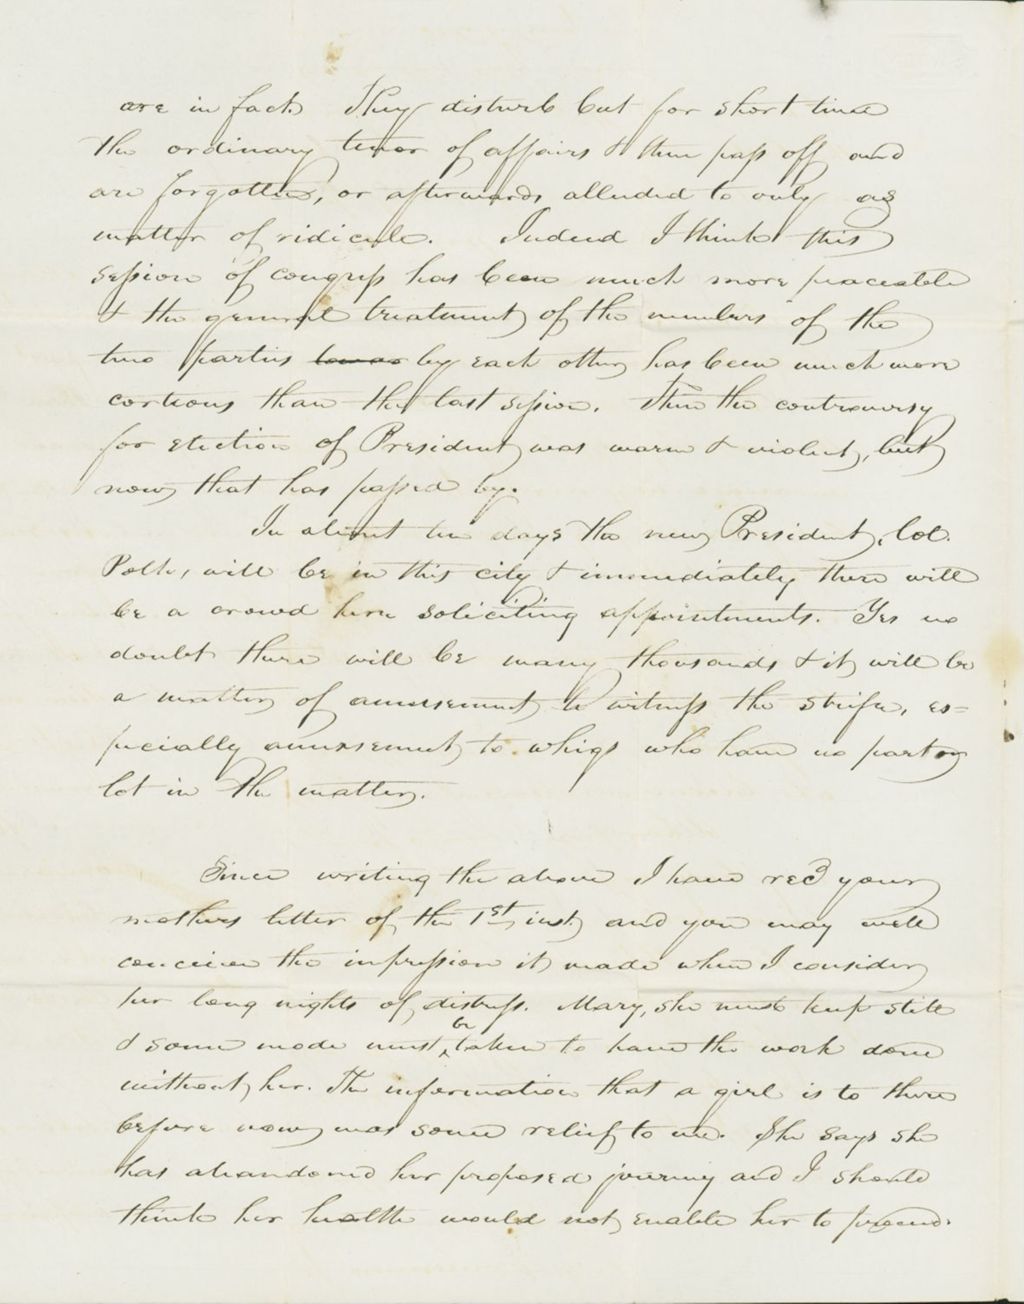 are in fact. They disturb but for short time
the ordinary tenor of affairs & then pass off and
are forgotten, or afterwards alluded to only as
matter of ridicule. Indeed I think this
session of congress has been much more peaceable
& the general treatment of the members of the
two parties by each other has been much more
corteous than the last session. Then the controversy
for election of President was warm & violent, but
now that has passed by.
In about ten days the new President, Col.
Polk, will be in this city & immediately there will
be a crowd here soliciting appointments. Yes no
doubt there will be many thousands & it will be
a matter of amusement to witness the strife, es=
pecially amusement to whigs who have no part or
lot in the matter.
Since writing the above I have recd your
mothers letter of the 1st inst. and you may well
conceive the impression it made when I consider
her long nights of distress. Mary, she must keep still
& some mode must be taken to have the work done
without her. The information that a girl is to there
before now was some relief to me. She says she
has abandoned her proposed journey and I should
think her health would not enable her to proceed.